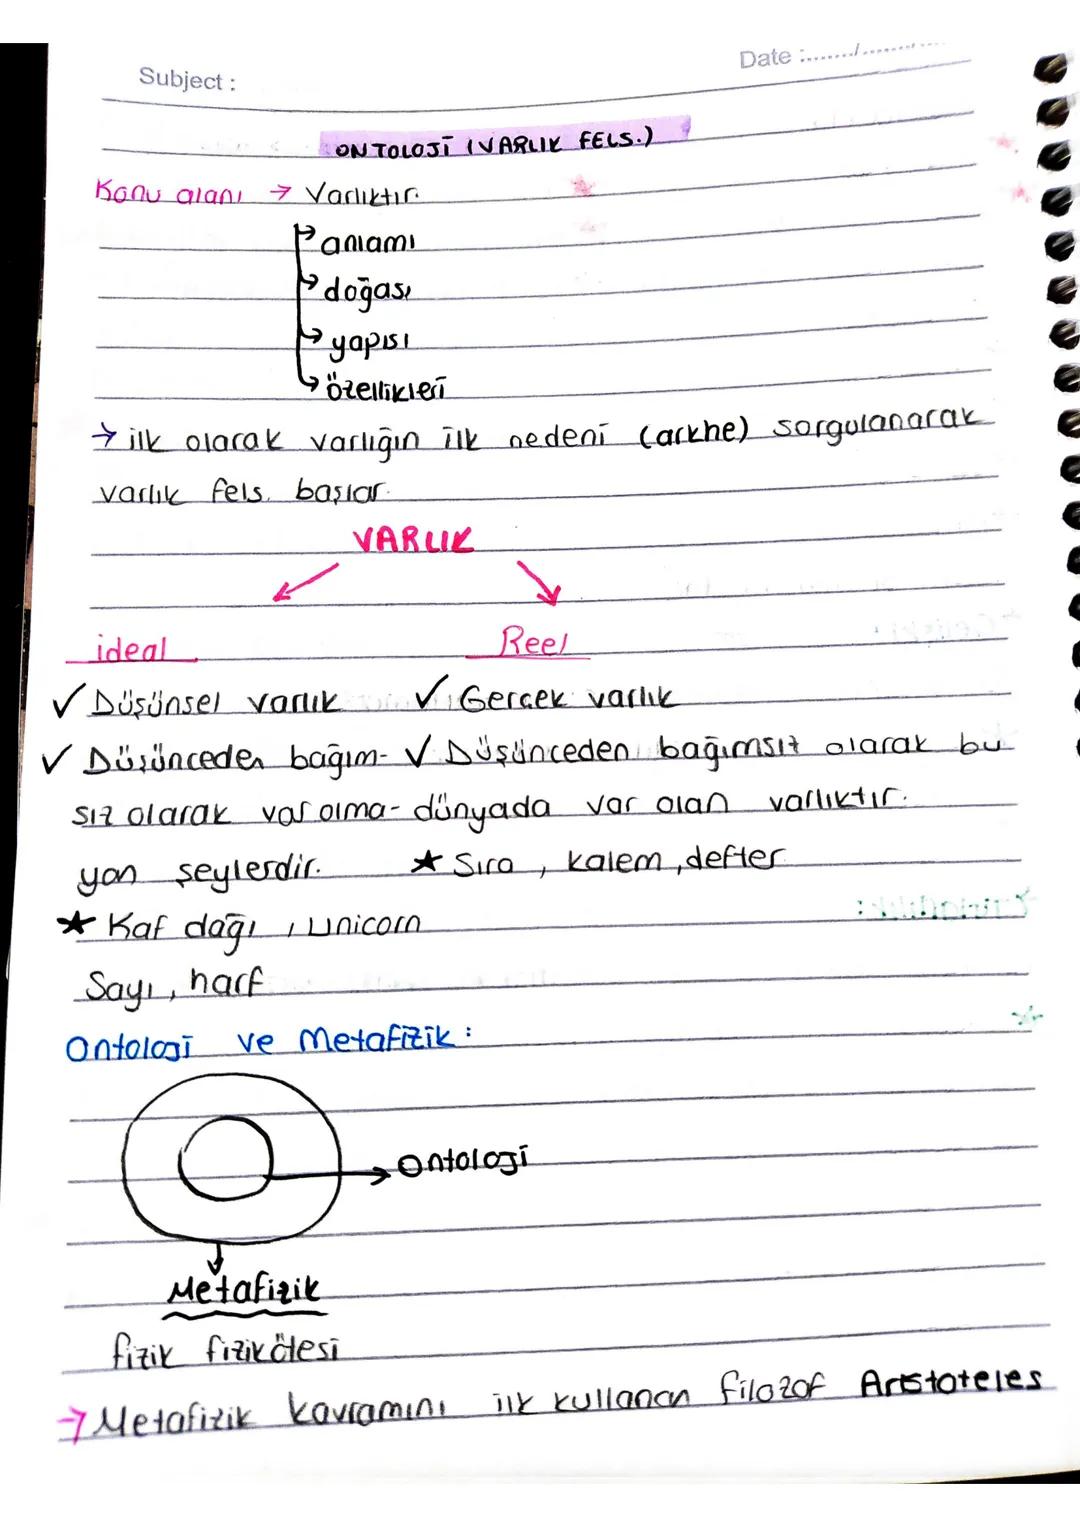 Subject :
Date :......../............
ONTOLOJİ (VARLIK FELS.)
Konu alanı → Varlıktır.
anlamı
doğası
yapısı
özellikleri
→ ilk olarak varlığın ilk nedeni (arkhe) sorgulanarak
varlık fels. başlar.
VARLIK
ideal
Reel
✓ Düşünsel varlık
✓ Düşünceden bağım-
sız olarak var olma-
yan şeylerdir.
★ Kaf dağı, Unicorn
Sayı, harf
✓ Gerçek varlık
✓ Düşünceden bağımsız olarak bu
dünyada var olan varlıktır.
★ Sıra, kalem, defter
Ontoloji ve Metafizik :
Ontoloji
Metafizik
fizik fizikötesi
→ Metafizik kavramını ilk kullanan filozof Aristoteles